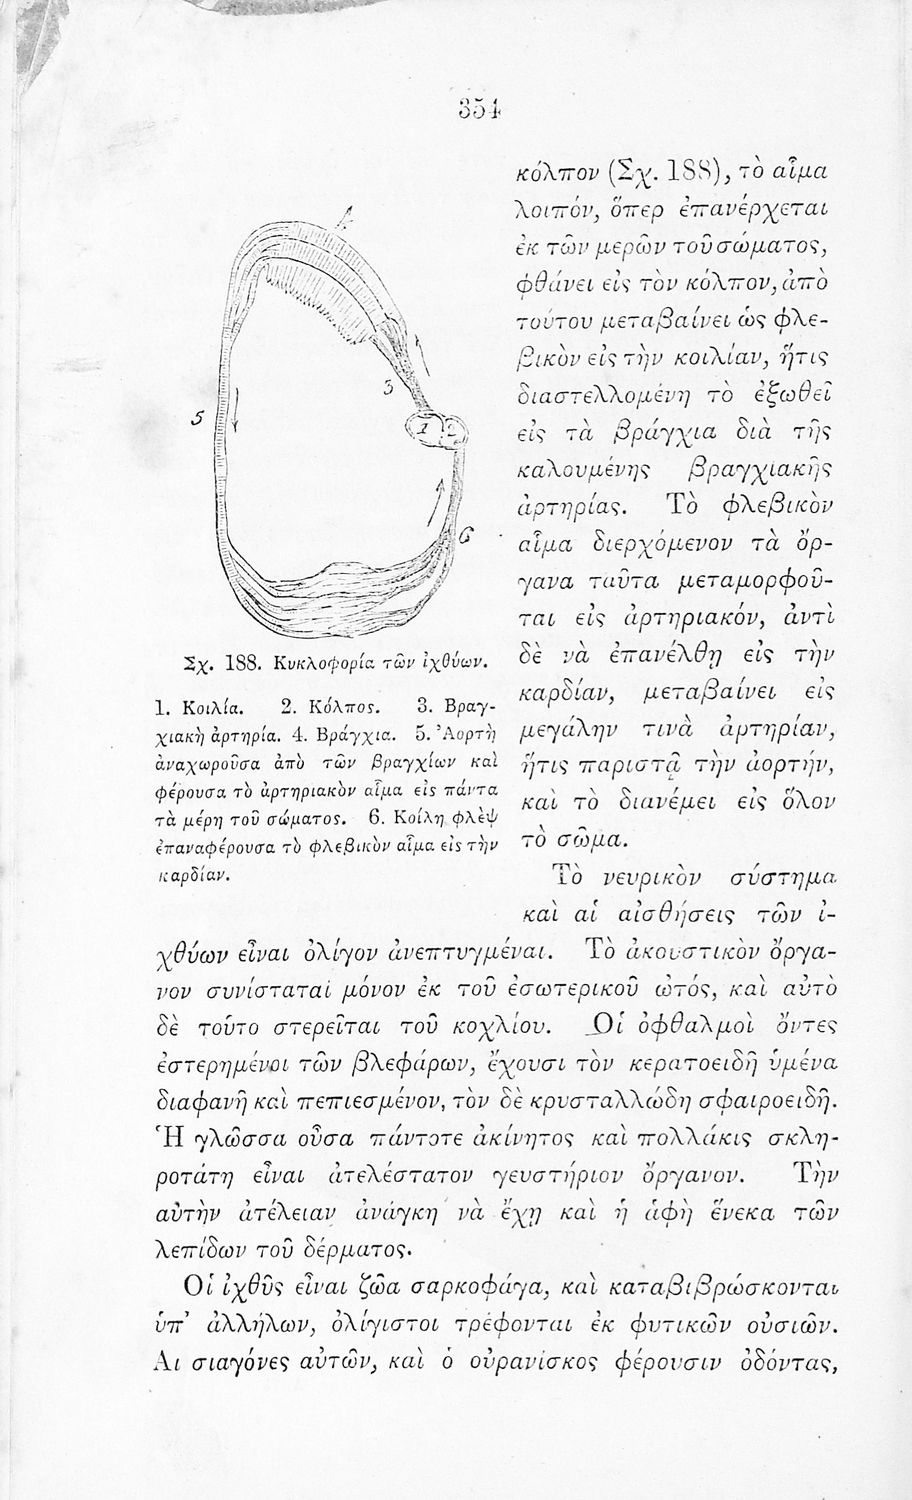 354
κόλπον (Σχ. 188), τὸ αἷμα
λοιπόν, ὅπερ ἐπανέρχεται
ἐκ τῶν μερῶν τοῦ σώματος,
φθάνει εἰς τὸν κόλπον, ἀπὸ
τούτου μεταβαίνει ὡς φλε-
βικὸν εἰς τὴν κοιλίαν, ἥτις
διαστελλομένη τὸ ἐξωθεῖ
εἰς τὰ βράγχια διὰ τῆς
καλουμένης βραγχιακῆς
ἀρτηρίας. Τὸ φλεβικὸν
αἷμα διερχόμενον τὰ ὄρ-
γανα ταῦτα μεταμορφοῦ-
ται εἰς ἀρτηριακόν, ἀντὶ
δὲ νὰ ἐπανέλθῃ εἰς τὴν
καρδίαν, μεταβαίνει εἰς
μεγάλην τινὰ ἀρτηρίαν,
ἥτις παριστᾷ τὴν ἀορτήν,
καὶ τὸ διανέμει εἰς ὅλον
τὸ σῶμα.
4
3
5
1
2
6
Σχ. 188. Κυκλοφορία τῶν ἰχθύων.
1. Κοιλία. 2. Κόλπος. 3. Βραγ-
χιακὴ ἀρτηρία. 4. Βράγχια. 5. Ἀορτὴ
ἀναχωροῦσα ἀπὸ τῶν βραγχίων καὶ
φέρουσα τὸ ἀρτηριακὸν αἷμα εἰς πάντα
τὰ μέρη τοῦ σώματος. 6. Κοίλη φλὲψ
ἐπαναφέρουσα τὸ φλεβικὸν αἷμα εἰς τὴν
καρδίαν.
Τὸ νευρικὸν σύστημα
καὶ αἱ αἰσθήσεις τῶν ἰ-
χθύων εἶναι ὀλίγον ἀνεπτυγμέναι. Τὸ ἀκουστικὸν ὄργα-
νον συνίσταται μόνον ἐκ τοῦ ἐσωτερικοῦ ὠτός, καὶ αὐτὸ
δὲ τοῦτο στερεῖται τοῦ κοχλίου. Οἱ ὀφθαλμοὶ ὄντες
ἐστερημένοι τῶν βλεφάρων, ἔχουσι τὸν κερατοειδῆ ὑμένα
διαφανῆ καὶ πεπιεσμένον, τὸν δὲ κρυσταλλώδη σφαιροειδῆ.
Ἡ γλῶσσα οὖσα πάντοτε ἀκίνητος καὶ πολλάκις σκλη-
ροτάτη εἶναι ἀτελέστατον γευστήριον ὄργανον. Τὴν
αὐτὴν ἀτέλειαν ἀνάγκη νὰ ἔχῃ καὶ ἡ ἁφὴ ἕνεκα τῶν
λεπίδων τοῦ δέρματος.
Οἱ ἰχθῦς εἶναι ζῶα σαρκοφάγα, καὶ καταβιβρώσκονται
ὑπ' ἀλλήλων, ὀλίγιστοι τρέφονται ἐκ φυτικῶν οὐσιῶν.
Αι σιαγόνες αὐτῶν, καὶ ὁ οὐρανίσκος φέρουσιν ὀδόντας,